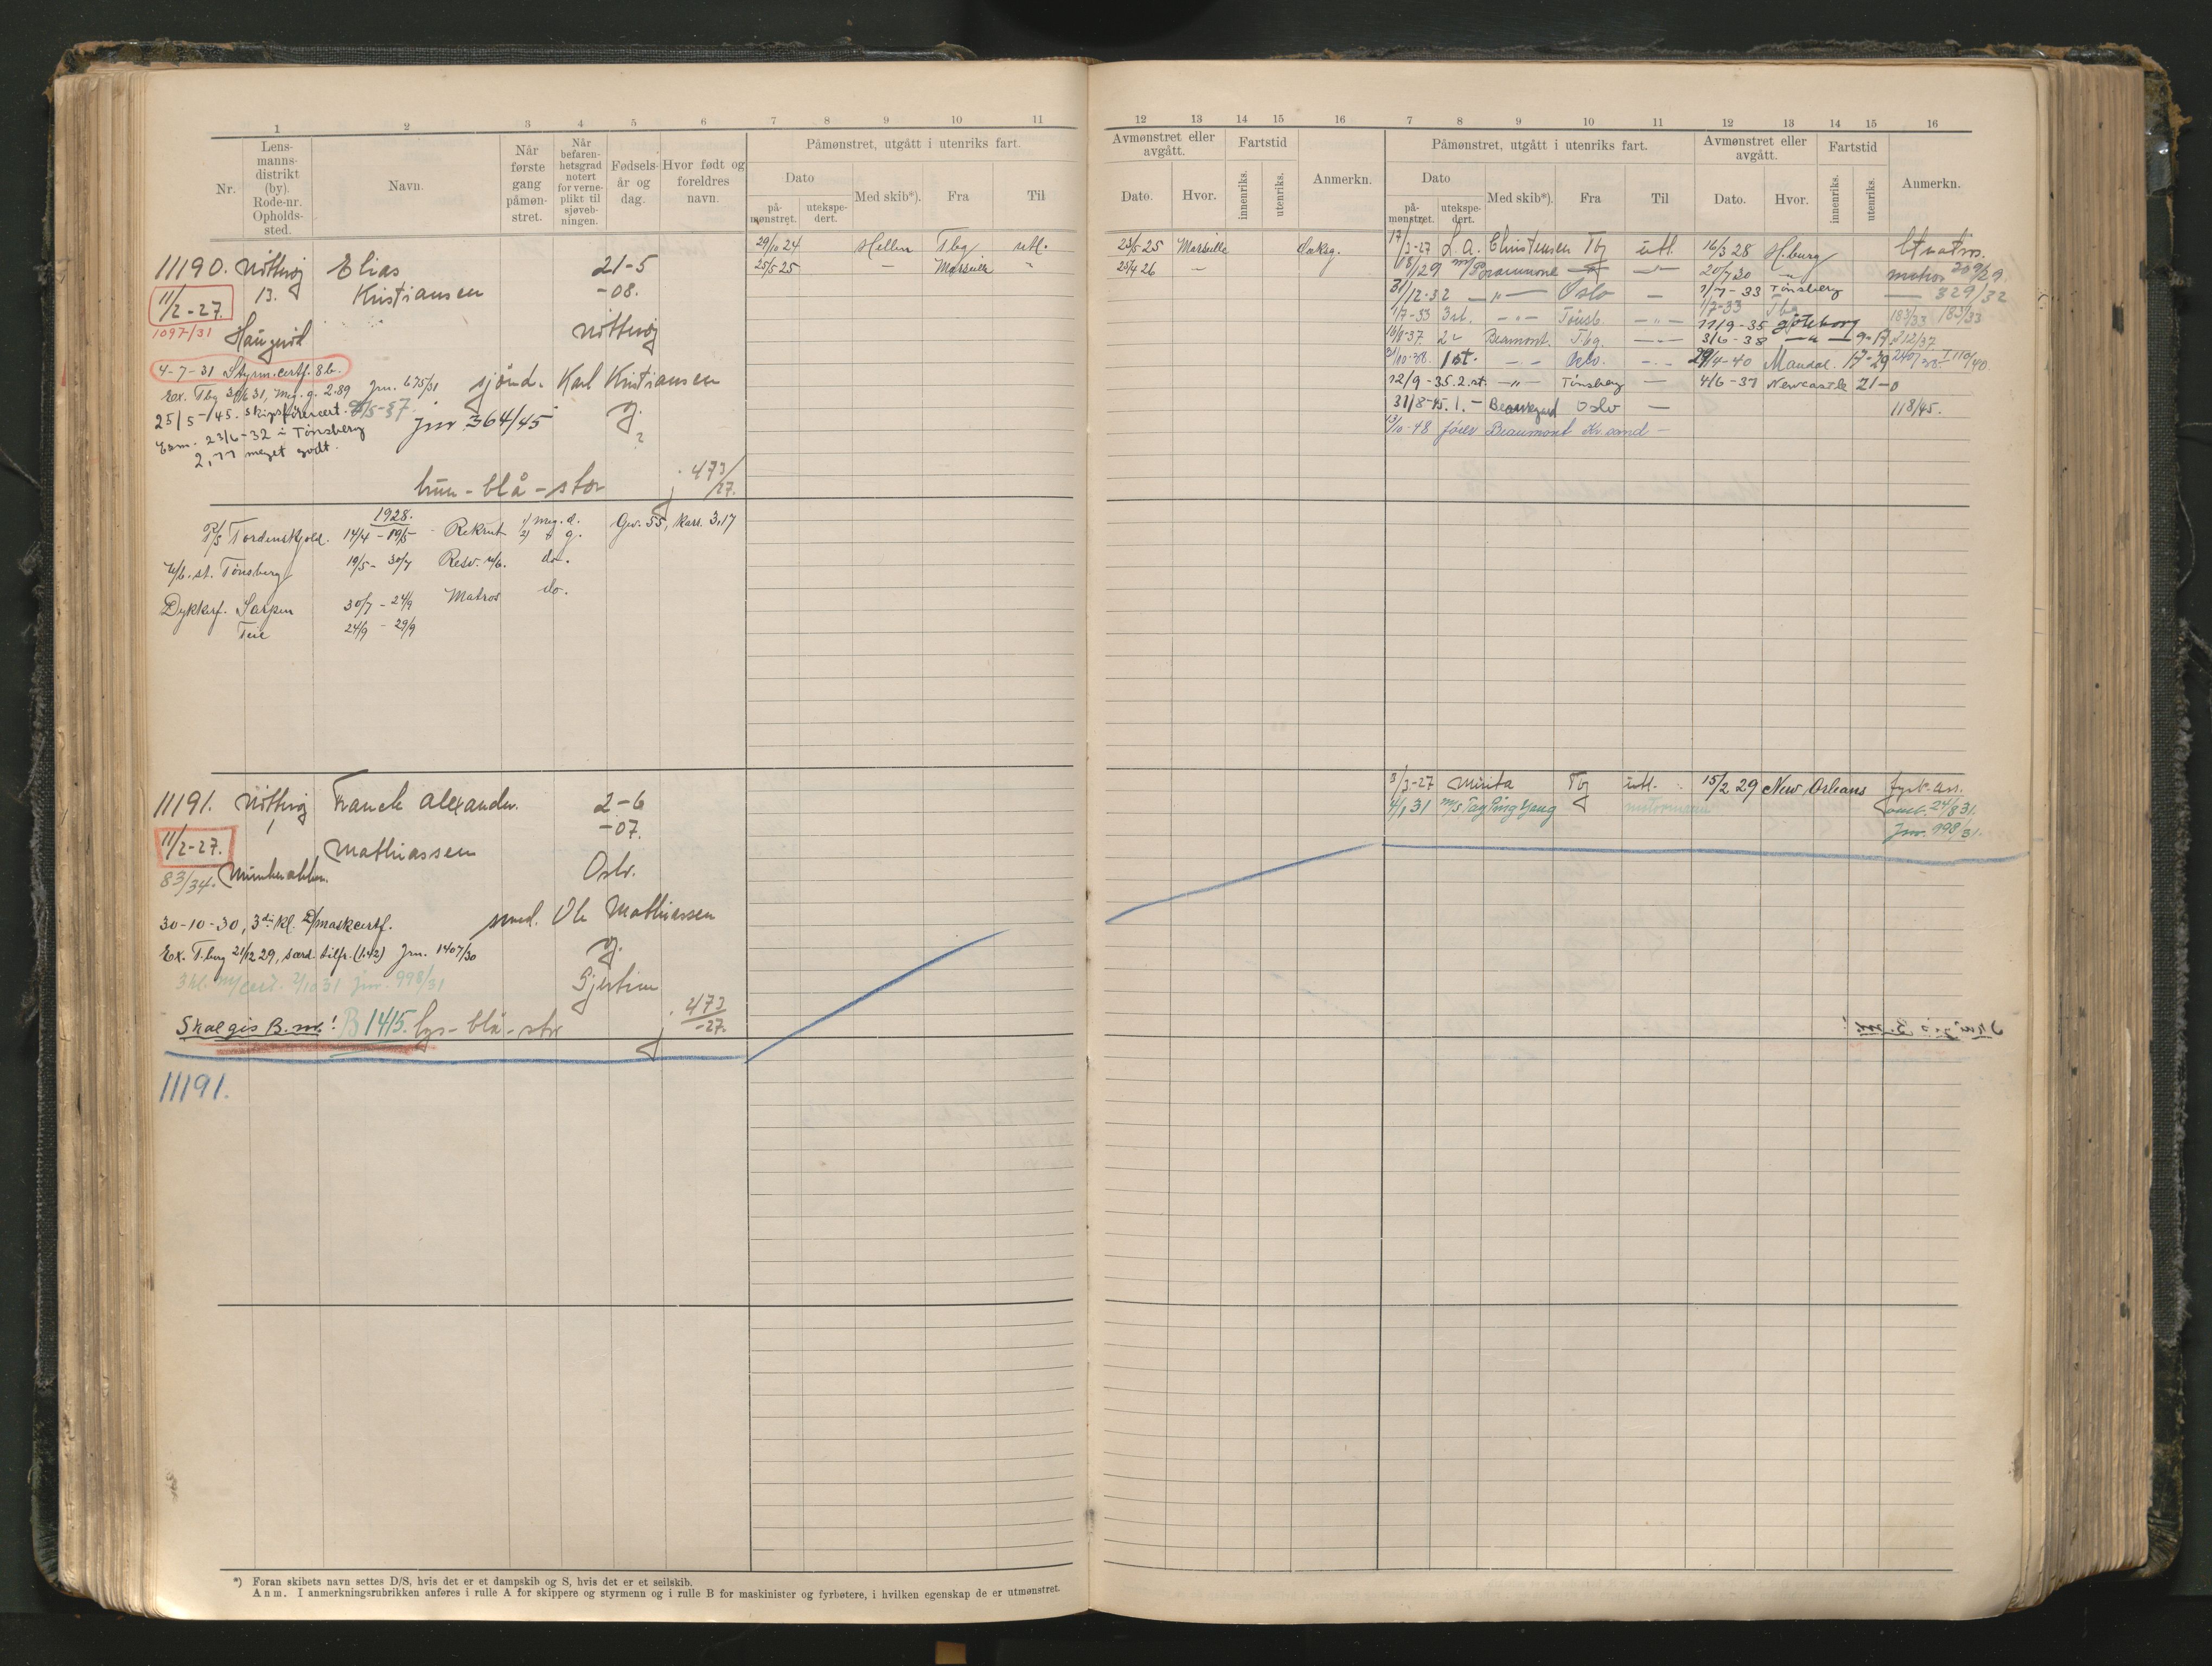 1 2 3 4 5 6 7 8 9 10 11
Nr.
Lens-
manns-
distrikt
(by).
Rode-nr.
Opholds-
sted.
Navn.
Når
første
gang
påmøn-
stret.
Når
befaren-
hetsgrad
notert
for verne-
plikt til
sjøveb-
ningen.
Fødsels-
år og
dag.
Hvor født og
foreldres
navn.
Påmønstret, utgått i utenriks fart.
Dato
på-
mønstret.
utekspe-
dert.
Med skib*).
Fra
Til
11190. Nøtterøy Elias 21-5
29/10 24 Hellen Tbg utl.
11/2-27. 13. Kristiansen -08.
25/5 25 — Marseille "
1097/31 Haugerød Nøtterøy
4-7-31 Styrm.certf. 8b.
Ex. Tbg 30/6 31, Meg. g. 2.89 Jrn. 675/31 sjømd. Karl Kristiansen
25/5-145. skipsførercert. Jnr 364/45 g.
Exm. 23/6-32 i Tønsberg ?
2,77 meget godt.
brun - blå - stor j. 473/27.
1928.
P/S Tordenskjold. 14/4 - 19/5 - Rekrut 1) meg. d. 2) " g. Gev. 55, Kar. 3,17
U/b. st. Tønsberg 19/5 - 30/7 Resv. u/b. do.
Dykkerf. Sarpen 30/7 - 24/9 Matros do.
Teie 24/9 - 29/9
11191. Nøtterøy Franck Alexander. 2-6
1 -07.
11/2-27. Mathiassen
83/34. Munkerekken. Oslo.
30-10-30, 3die kl. D/maskcertf. smed. Ole Mathiassen
Ex. T.berg 21/12 29, særd. tilfr. (1.42) Jrn. 1407/30 g.
3 kl. m/cert. 2/10 31 Jnr. 998/31 Gjertine
Skal gis B.nr.! B 1415. lys - blå - stor j. 473/-27.
11191.
*) Foran skibets navn settes D/S, hvis det er et dampskib og S, hvis det er et seilskib.
Anm. I anmerkningsrubrikken anføres i rulle A for skippere og styrmenn og i rulle B for maskinister og fyrbøtere, i hvilken egenskap de er utmønstret.
12 13 14 15 16 7 8 9 10 11 12 13 14 15 16
Avmønstret eller
avgått.
Dato.
Hvor.
Fartstid
innenriks.
utenriks.
Anmerkn.
Påmønstret, utgått i utenriks fart.
Dato
på-
mønstret.
utekspe-
dert.
Med skib*).
Fra
Til
Avmønstret eller
avgått.
Dato.
Hvor.
Fartstid
innenriks.
utenriks.
Anmerkn.
23/5 25 Marseille daksg. 17/3-27 L. A. Christensen Tbg utl. 16/3 28 H.burg
25/4 26 — 18/1 29 m/s — 20/7 30 " matros 209/29.
31/12-32 — " — Oslo — 1/7-33 Tønsberg — 329/32
1/7-33 3st. — " — Tønsb. — " — 1/7-33 Tbg 183/33
11/9-35 Göteborg
18/8-37. 2 " Beaumont. Tbg. — 3/6-38 — " — 9-17 212/37.
31/10-38. 1st. — " — Oslo. — 29/4-40 Mandal. 17-29 240/38. I 110/40.
12/9-35. 2.st. — " — Tønsberg — 4/6-37 Newcastle 21-0
31/8-45. 1. — Oslo — 118/45.
13/10-48 fører Beaumont Kr.sand —
3/3-27 Mirita Tbg utl. 15/2 29 New Orleans fyrb. ass.
4/1 31 m/s Tai Ping Yang " 24/8 31.
Jnr. 998/31.